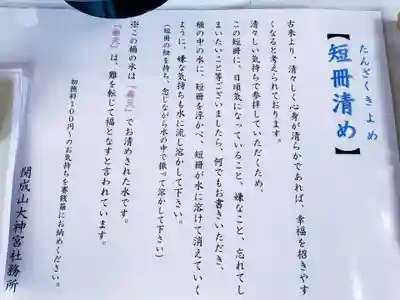 たんざくきよめ
【短冊清め】
古来より、清々しく心身が清らかであれば、幸福を招きやす
くなると考えられております。
清々しい気持ちで参拝していただくため、
この短冊に、日頃気になっていること、嫌なこと、忘れてし
まいたいこと等ございましたら、何でもお書きいただき、
桶の中の水に、短冊を浮かべ、短冊が水に溶けて消えていく
ように、嫌な気持ちも水に流し溶かして下さい。
(短冊の紐を持ち、念じながら水の中で振って溶かして下さい)
※この桶の水は『
』でお清めされた水です。
『
』は、難を転じて福となすと言われています。
初穂料100円のお気持ちを賽銭箱にお納めください。
開成山大神宮社務所